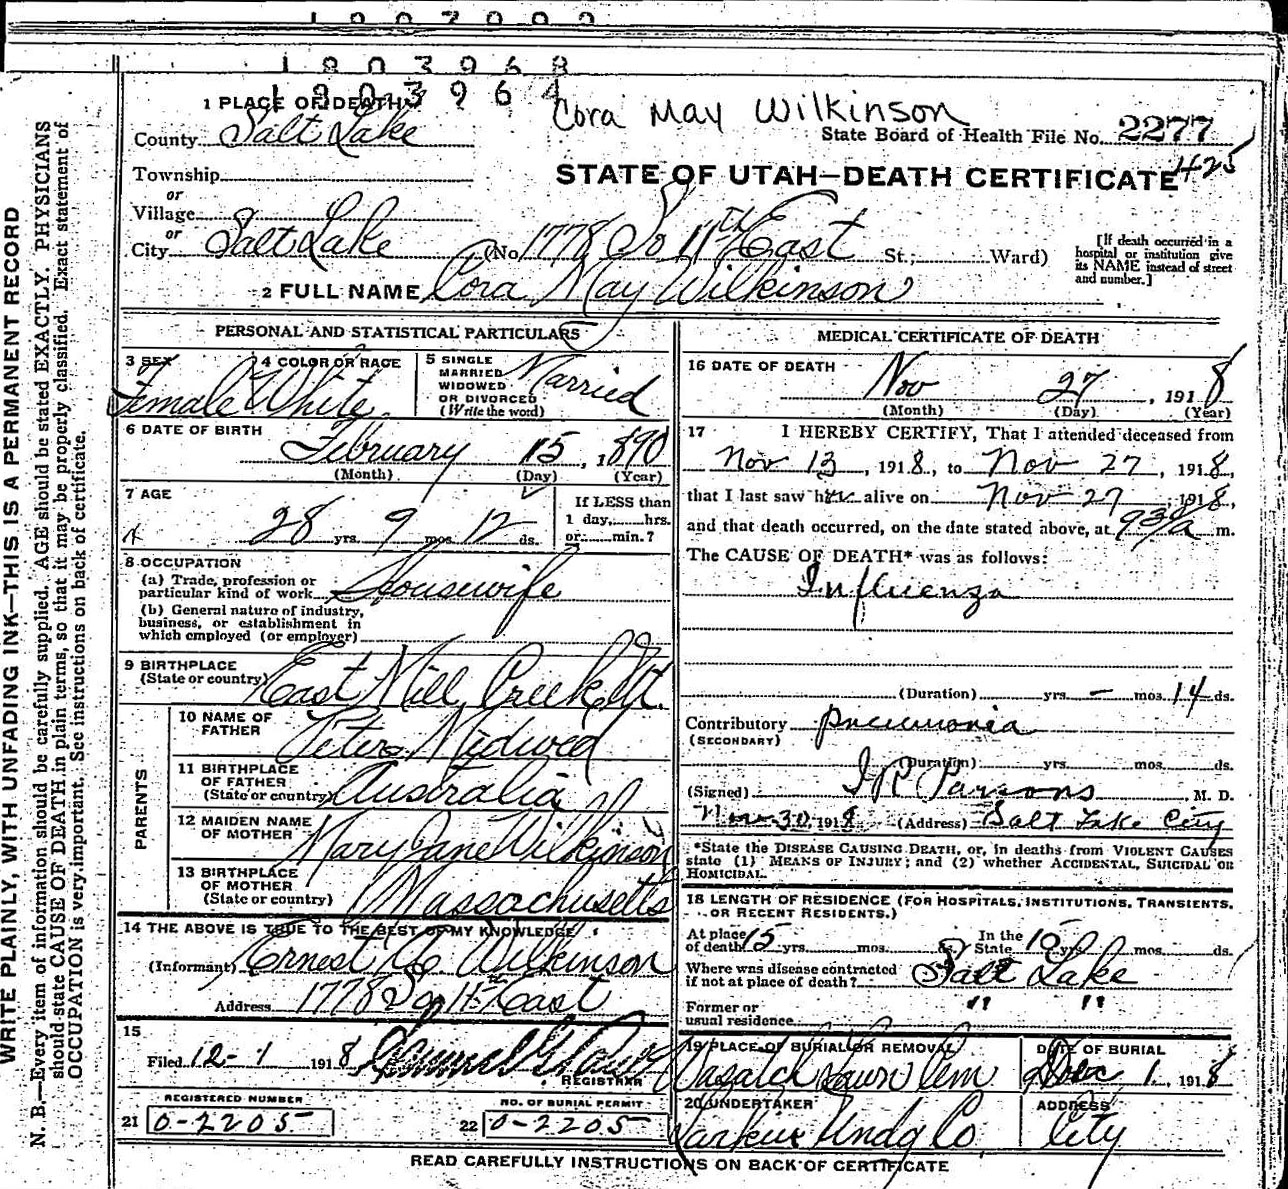 1803968
1803964
Cora May Wilkinson
1 PLACE OF DEATH
County Salt Lake
State Board of Health File No. 2277
425
Township
STATE OF UTAH—DEATH CERTIFICATE
or
Village
or
City Salt Lake (No 1778 So 11th East St.; Ward)
[If death occurred in a
hospital or institution give
its NAME instead of street
and number.]
2 FULL NAME Cora May Wilkinson
PERSONAL AND STATISTICAL PARTICULARS
3 SEX Female
4 COLOR OR RACE White
5 SINGLE
MARRIED
WIDOWED
OR DIVORCED
(Write the word)
Married
6 DATE OF BIRTH
February 15, 1890
(Month) (Day) (Year)
7 AGE
28 yrs. 9 mos. 12 ds.
If LESS than
1 day, hrs.
or min.?
8 OCCUPATION
(a) Trade, profession or
particular kind of work Housewife
(b) General nature of industry,
business, or establishment in
which employed (or employer)
9 BIRTHPLACE
(State or country) East Mill Creek Ut.
PARENTS
10 NAME OF
FATHER Peter Midwed
11 BIRTHPLACE
OF FATHER
(State or country) Australia
12 MAIDEN NAME
OF MOTHER Mary Jane Wilkinson
13 BIRTHPLACE
OF MOTHER
(State or country) Massachusetts
14 THE ABOVE IS TRUE TO THE BEST OF MY KNOWLEDGE
(Informant) Ernest Wilkinson
Address 1778 So 11th East
15
Filed 12-1 1918
REGISTRAR
REGISTERED NUMBER
21 0-2205
NO. OF BURIAL PERMIT
22 0-2205
MEDICAL CERTIFICATE OF DEATH
16 DATE OF DEATH
Nov 27, 1918
(Month) (Day) (Year)
17 I HEREBY CERTIFY, That I attended deceased from
Nov 13, 1918, to Nov 27, 1918,
that I last saw her alive on Nov 27, 1918,
and that death occurred, on the date stated above, at 939a m.
The CAUSE OF DEATH* was as follows:
Influenza
(Duration) yrs. - mos. 14 ds.
Contributory pneumonia
(SECONDARY)
(Duration) yrs. mos. ds.
(Signed) Parsons M. D.
Nov 30 1918 (Address) Salt Lake City
*State the DISEASE CAUSING DEATH, or, in deaths from VIOLENT CAUSES
state (1) MEANS OF INJURY; and (2) whether ACCIDENTAL, SUICIDAL OR
HOMICIDAL.
18 LENGTH OF RESIDENCE (FOR HOSPITALS, INSTITUTIONS, TRANSIENTS,
OR RECENT RESIDENTS.)
At place
of death 15 yrs. mos. ds.
In the
State yrs. mos. ds.
Where was disease contracted
if not at place of death? Salt Lake
Former or
usual residence " "
19 PLACE OF BURIAL OR REMOVAL
Wasatch Lawn Cem
DATE OF BURIAL
Dec 1, 1918
20 UNDERTAKER
Larkin Undg Co
ADDRESS
City
READ CAREFULLY INSTRUCTIONS ON BACK OF CERTIFICATE
WRITE PLAINLY, WITH UNFADING INK—THIS IS A PERMANENT RECORD
N. B.—Every item of information should be carefully supplied. AGE should be stated EXACTLY. PHYSICIANS
should state CAUSE OF DEATH in plain terms, so that it may be properly classified. Exact statement of
OCCUPATION is very important. See instructions on back of certificate.